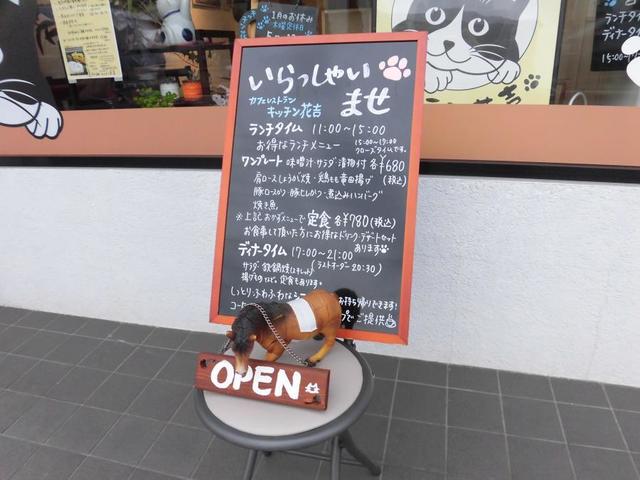 いらっしゃい
ませ
カフェレストラン
キッチン花吉
ランチタイム 11:00~15:00
お得なランチメニュー
15:00~17:00
クローズタイムです。
ワンプレート 味噌汁・サラダ・漬物付 各¥680
(税込)
肩ロースしょうが焼・鶏もも竜田揚げ
豚ロースカツ・豚ヒレかつ・煮込みハンバーグ
焼き魚
※上記おかずメニューで定食各¥780(税込)
お食事して頂いた方にお得なドリンク・デザートセット
あります
ディナータイム 17:00~21:00
(ラストオーダー 20:30)
サラダ・鉄鍋焼
揚げものなど。定食もあります。
しっとり・ふわふわな
お持ち帰りできます!
コー
プでご提供
OPEN
1月のお休み
木曜定休日
ランチタイ
ディナータイ